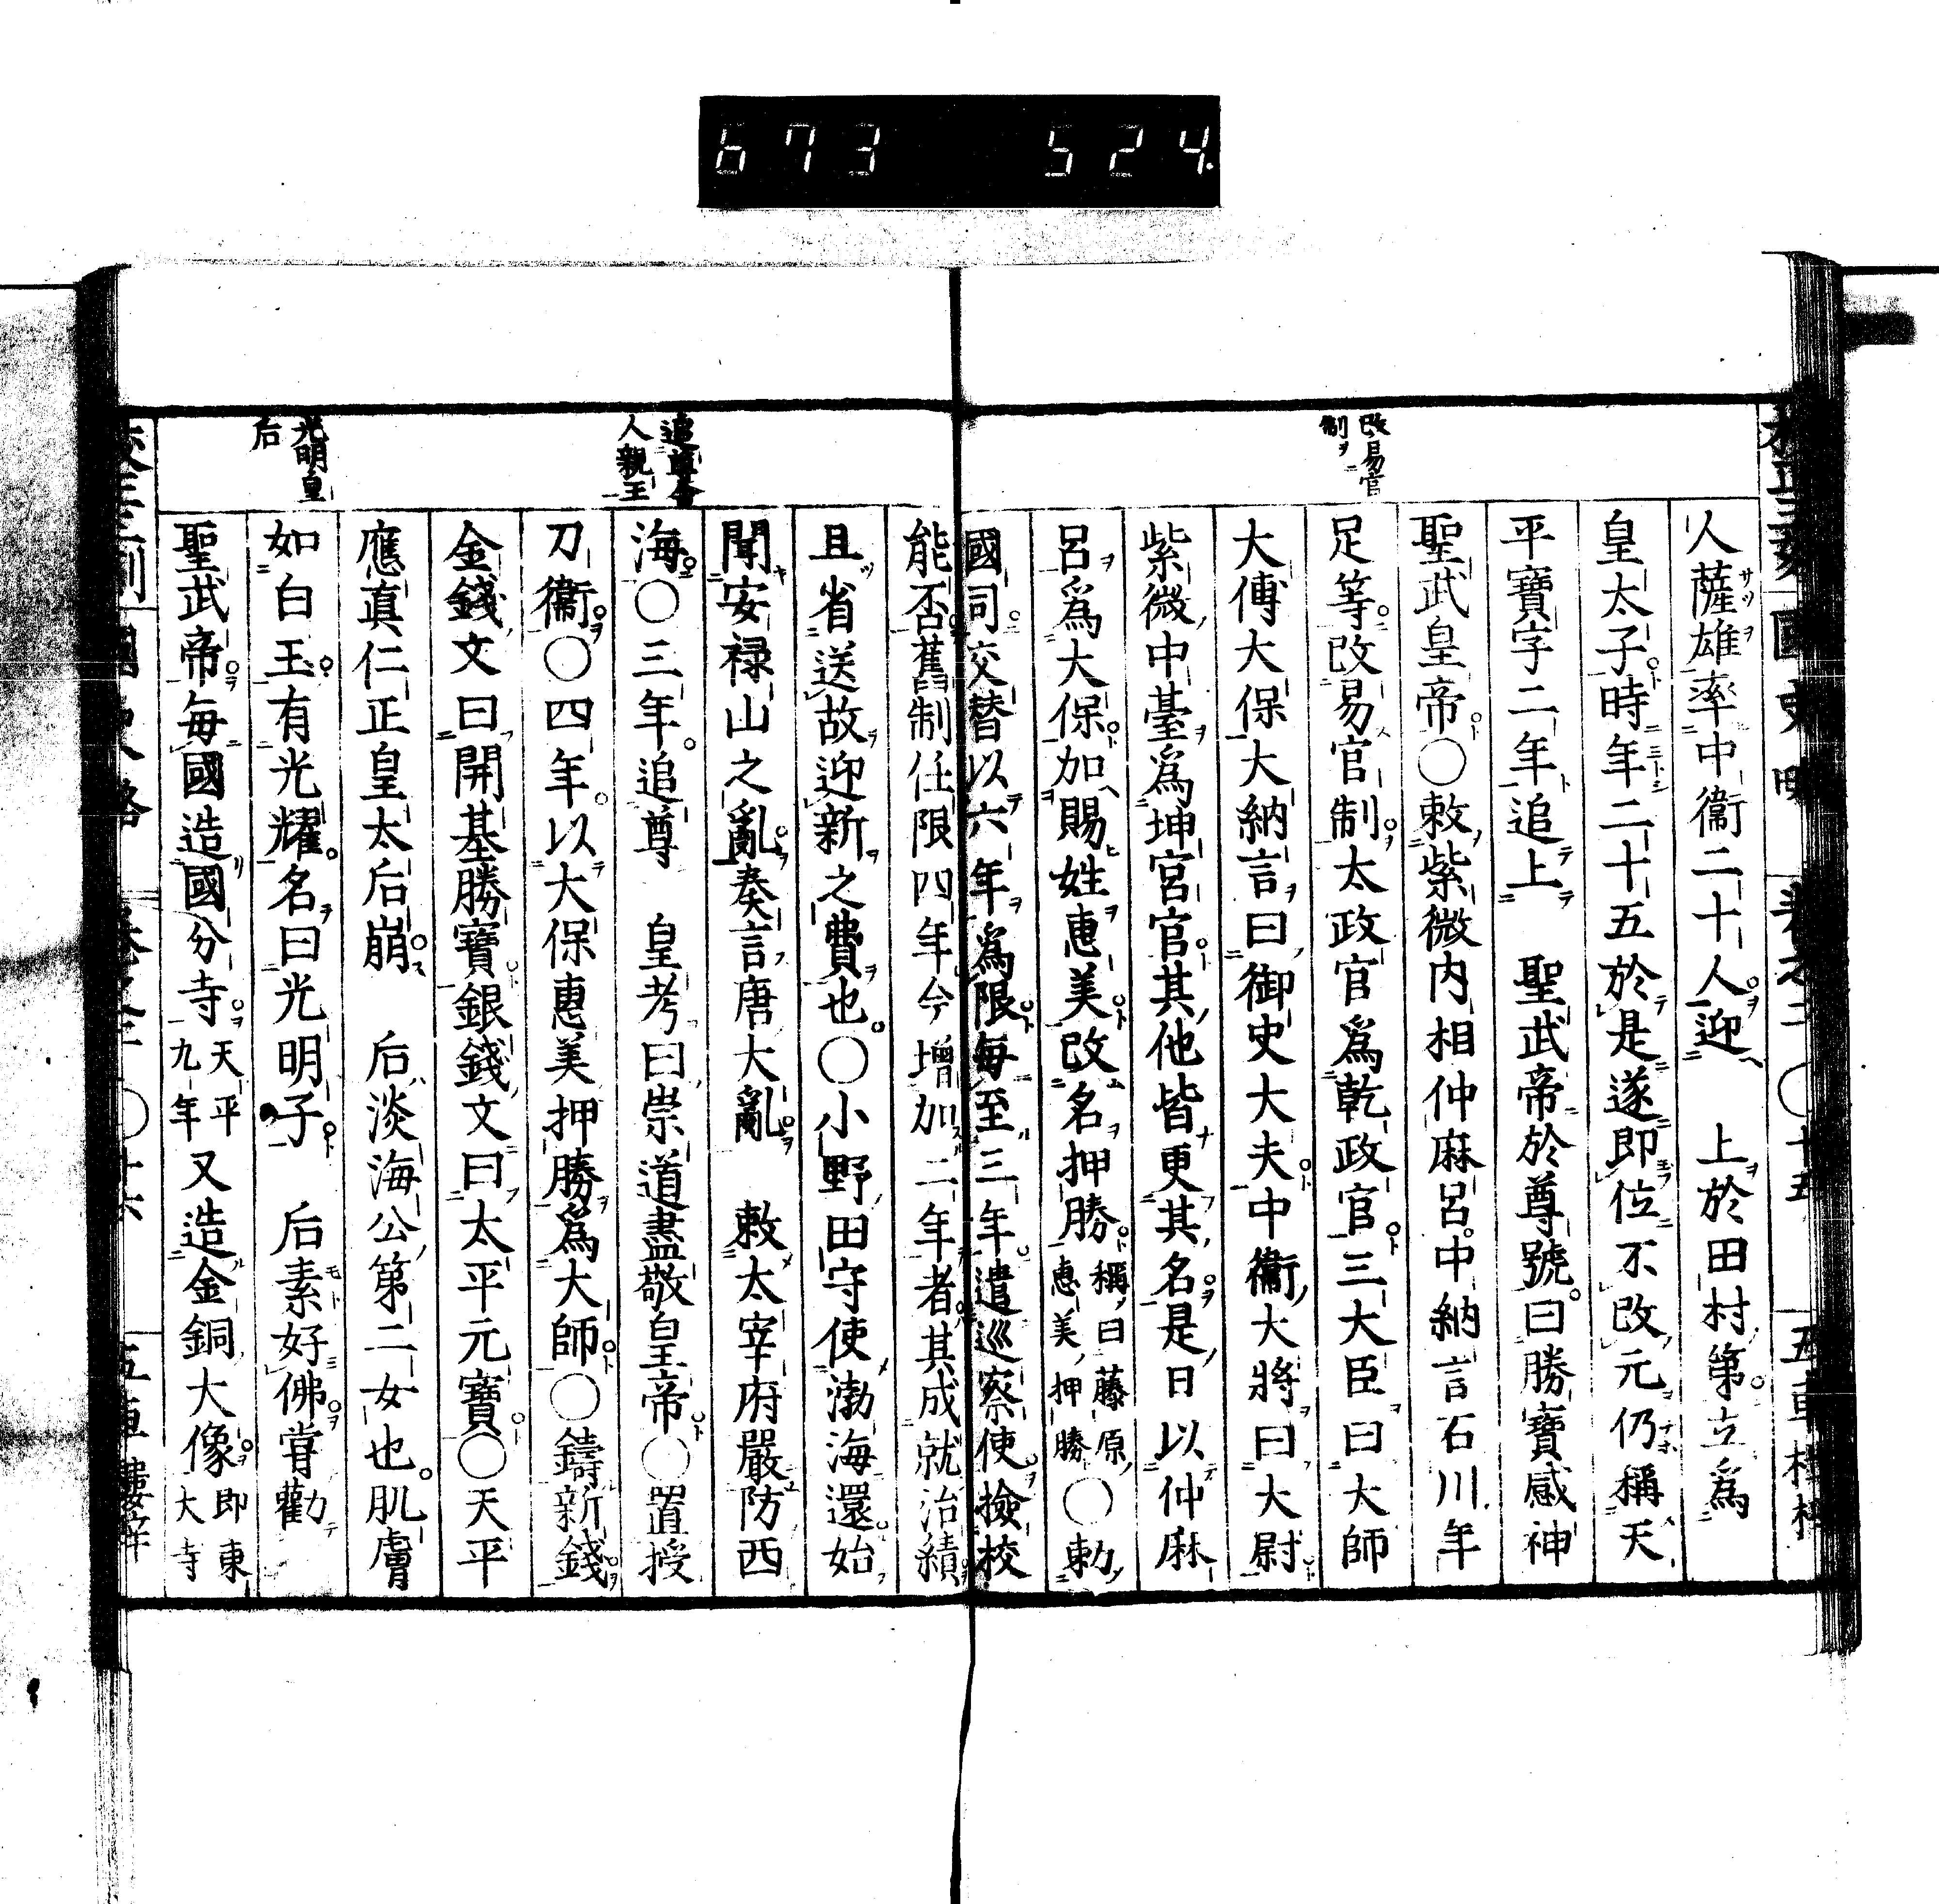 673 524
改易官
制ヲ
人薩雄率中衞二十人迎　上於田村第立爲
皇太子時年二十五於是遂即位不改元仍稱天
平寶字二年追上　聖武帝於尊號曰勝寶感神
聖武皇帝〇敕紫微内相仲麻呂中納言石川年
足等改易官制太政官爲乾政官三大臣曰大師
大傅大保大納言曰御史大夫中衞大將曰大尉
紫微中臺爲坤宮官其他皆更其名是日以仲麻
呂爲大保加賜姓惠美改名押勝稱曰藤原惠美押勝〇勅
國司交替以六年爲限每至三年遣巡察使撿校
追尊舍
人親王
光明皇
后
能否舊制任限四年今增加二年者其成就治績
且省送故迎新之費也〇小野田守使渤海還始
聞安禄山之亂奏言唐大亂　敕太宰府嚴防西
海〇三年追尊　皇考曰崇道盡敬皇帝〇置授
刀衞〇四年以大保惠美押勝爲大師〇鑄新錢
金錢文曰開基勝寶銀錢文曰太平元寶〇天平
應真仁正皇太后崩　后淡海公第二女也肌膚
如白玉有光耀名曰光明子　后素好佛嘗勸
聖武帝每國造國分寺天平九年又造金銅大像即東大寺